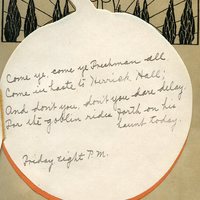 Come ye, come ye Freshman all
Come in haste to Herrick Hall;
And don't you, don't you dare delay.
For the goblin rides forth on his
haunt today.
Friday night P.M.